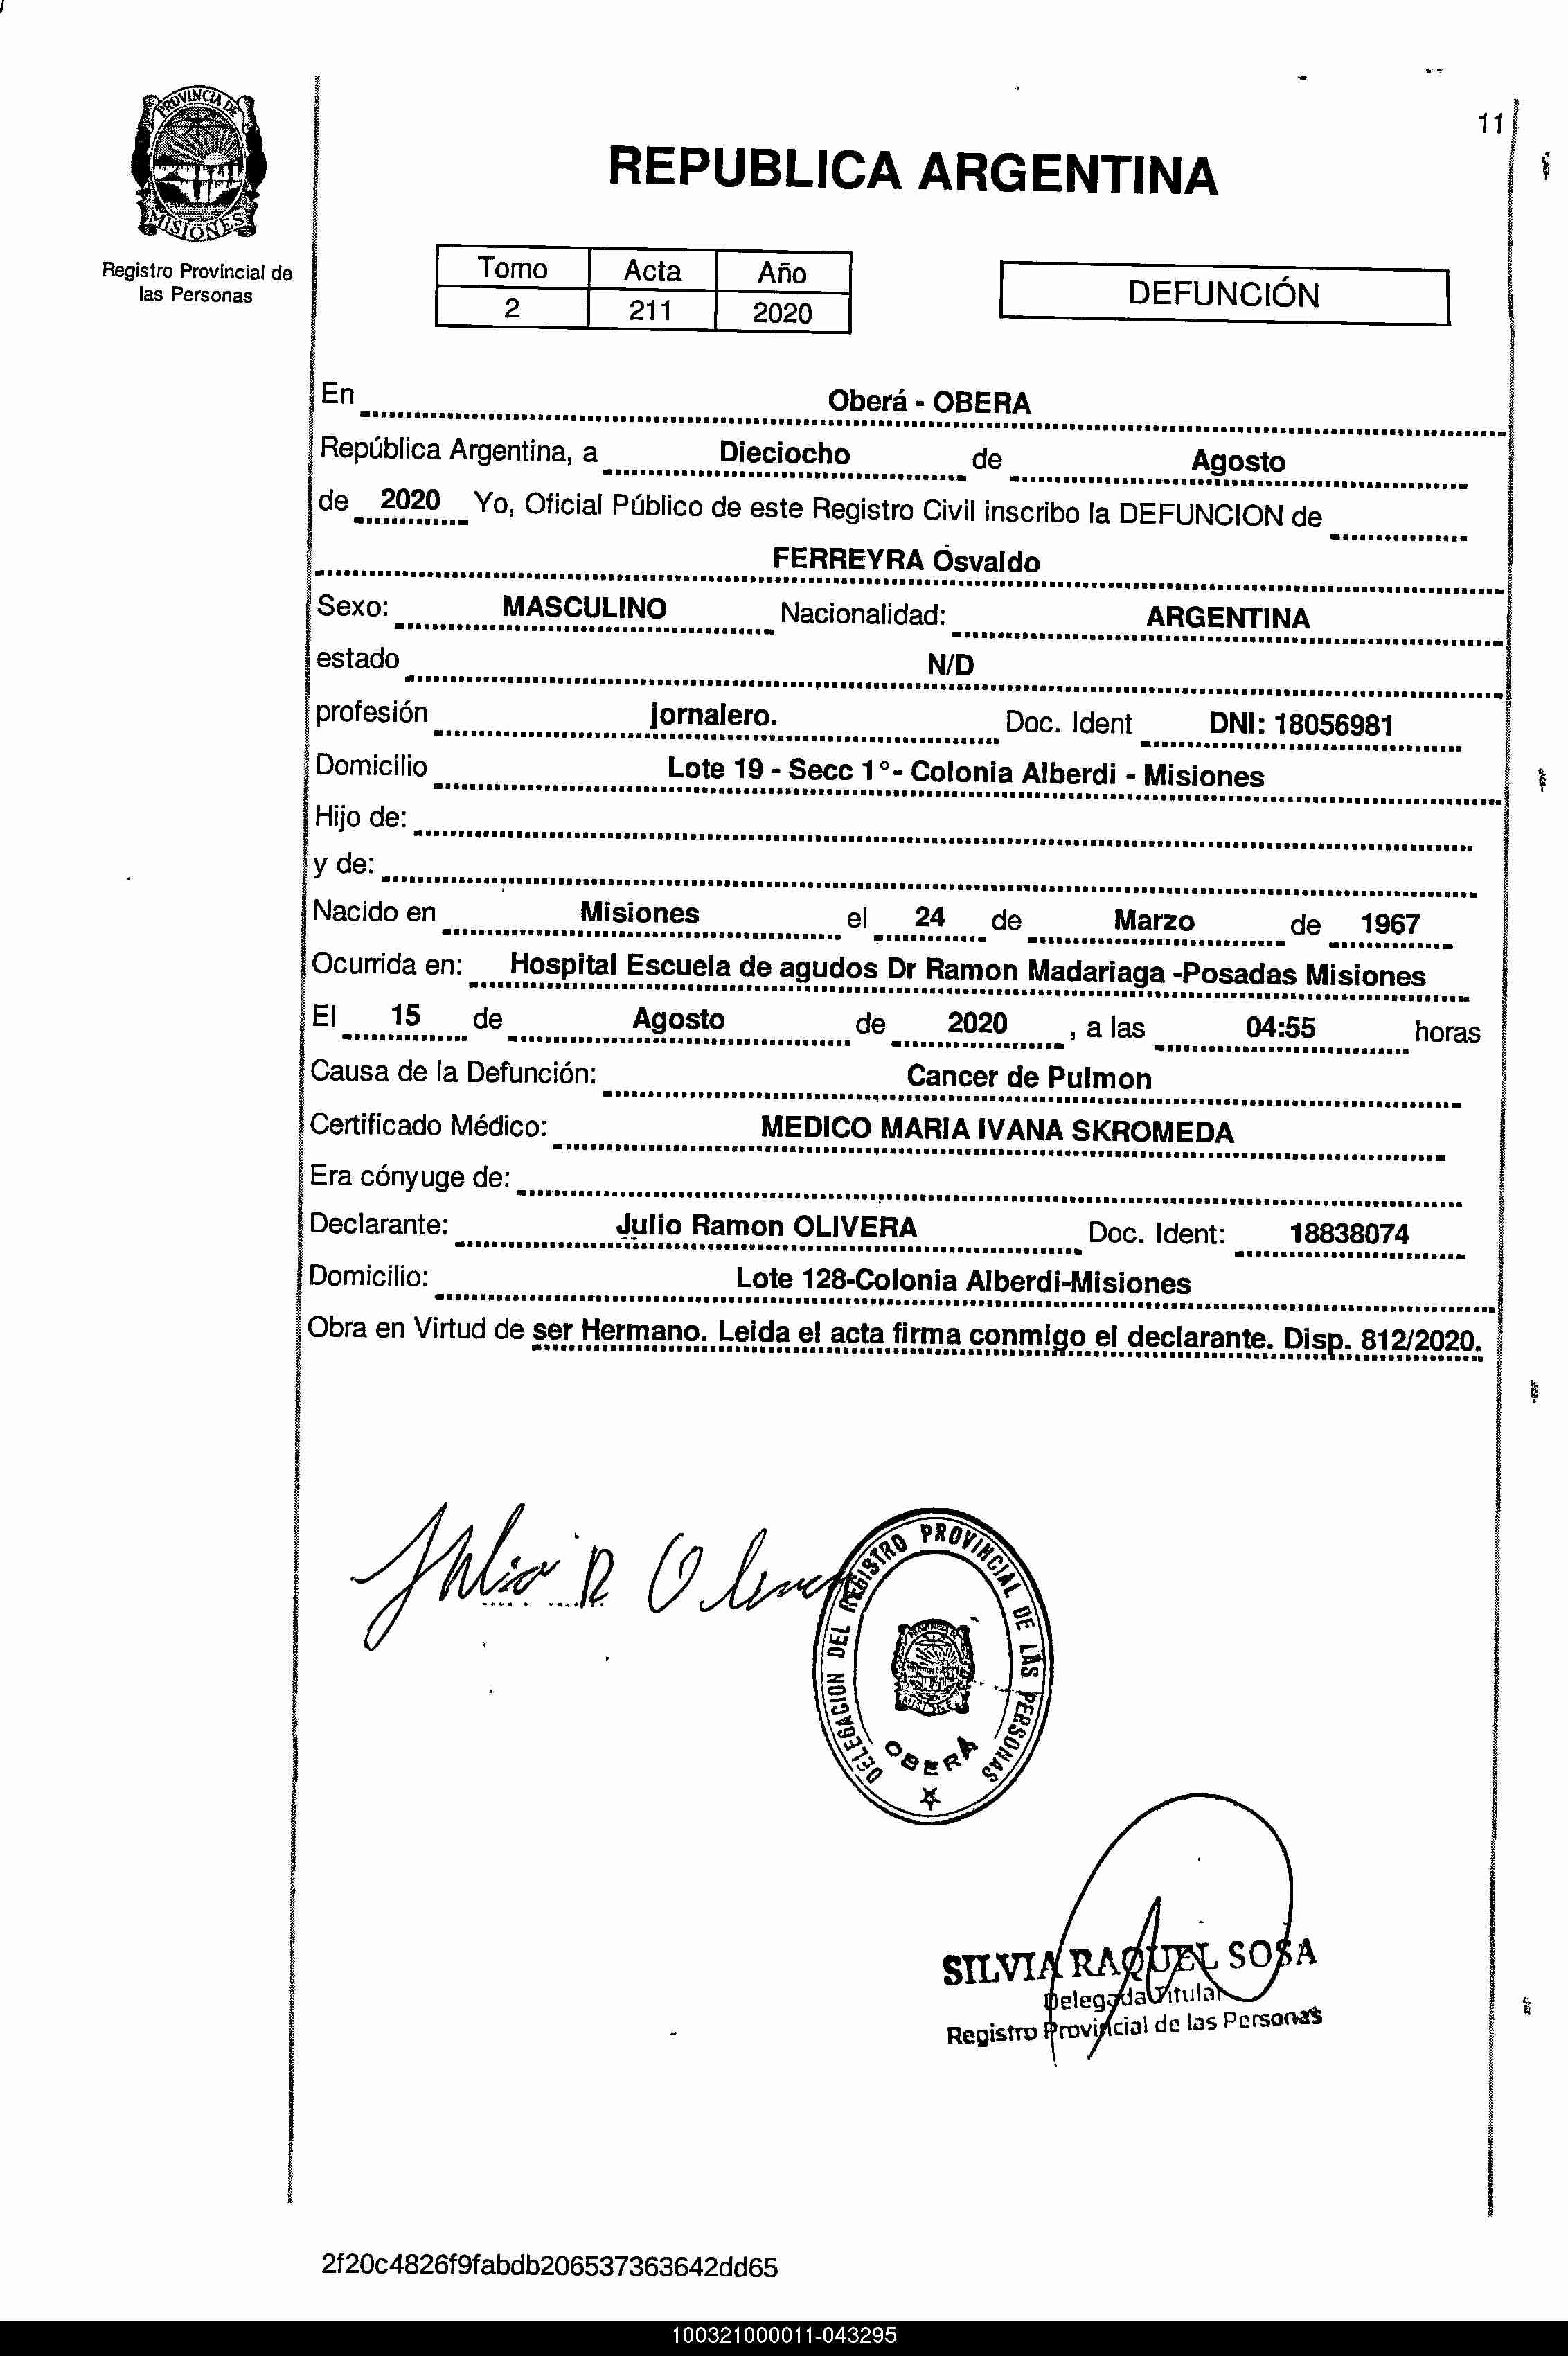 11
PROVINCIA DE
MISIONES
Registro Provincial de
las Personas
REPUBLICA ARGENTINA
Tomo Acta Año
2 211 2020
DEFUNCIÓN
En Oberá - OBERA
República Argentina, a Dieciocho de Agosto
de 2020 Yo, Oficial Público de este Registro Civil inscribo la DEFUNCION de
FERREYRA Osvaldo
Sexo: MASCULINO Nacionalidad: ARGENTINA
estado N/D
profesión jornalero. Doc. Ident DNI: 18056981
Domicilio Lote 19 - Secc 1°- Colonia Alberdi - Misiones
Hijo de:
y de:
Nacido en Misiones el 24 de Marzo de 1967
Ocurrida en: Hospital Escuela de agudos Dr Ramon Madariaga -Posadas Misiones
El 15 de Agosto de 2020 , a las 04:55 horas
Causa de la Defunción: Cancer de Pulmon
Certificado Médico: MEDICO MARIA IVANA SKROMEDA
Era cónyuge de:
Declarante: Julio Ramon OLIVERA Doc. Ident: 18838074
Domicilio: Lote 128-Colonia Alberdi-Misiones
Obra en Virtud de ser Hermano. Leida el acta firma conmigo el declarante. Disp. 812/2020.
Julio R Olivera
DELEGACION DEL REGISTRO PROVINCIAL DE LAS PERSONAS
OBERA
SILVIA RAQUEL SOSA
Delegada Titular
Registro Provincial de las Personas
2f20c4826f9fabdb206537363642dd65
100321000011-043295